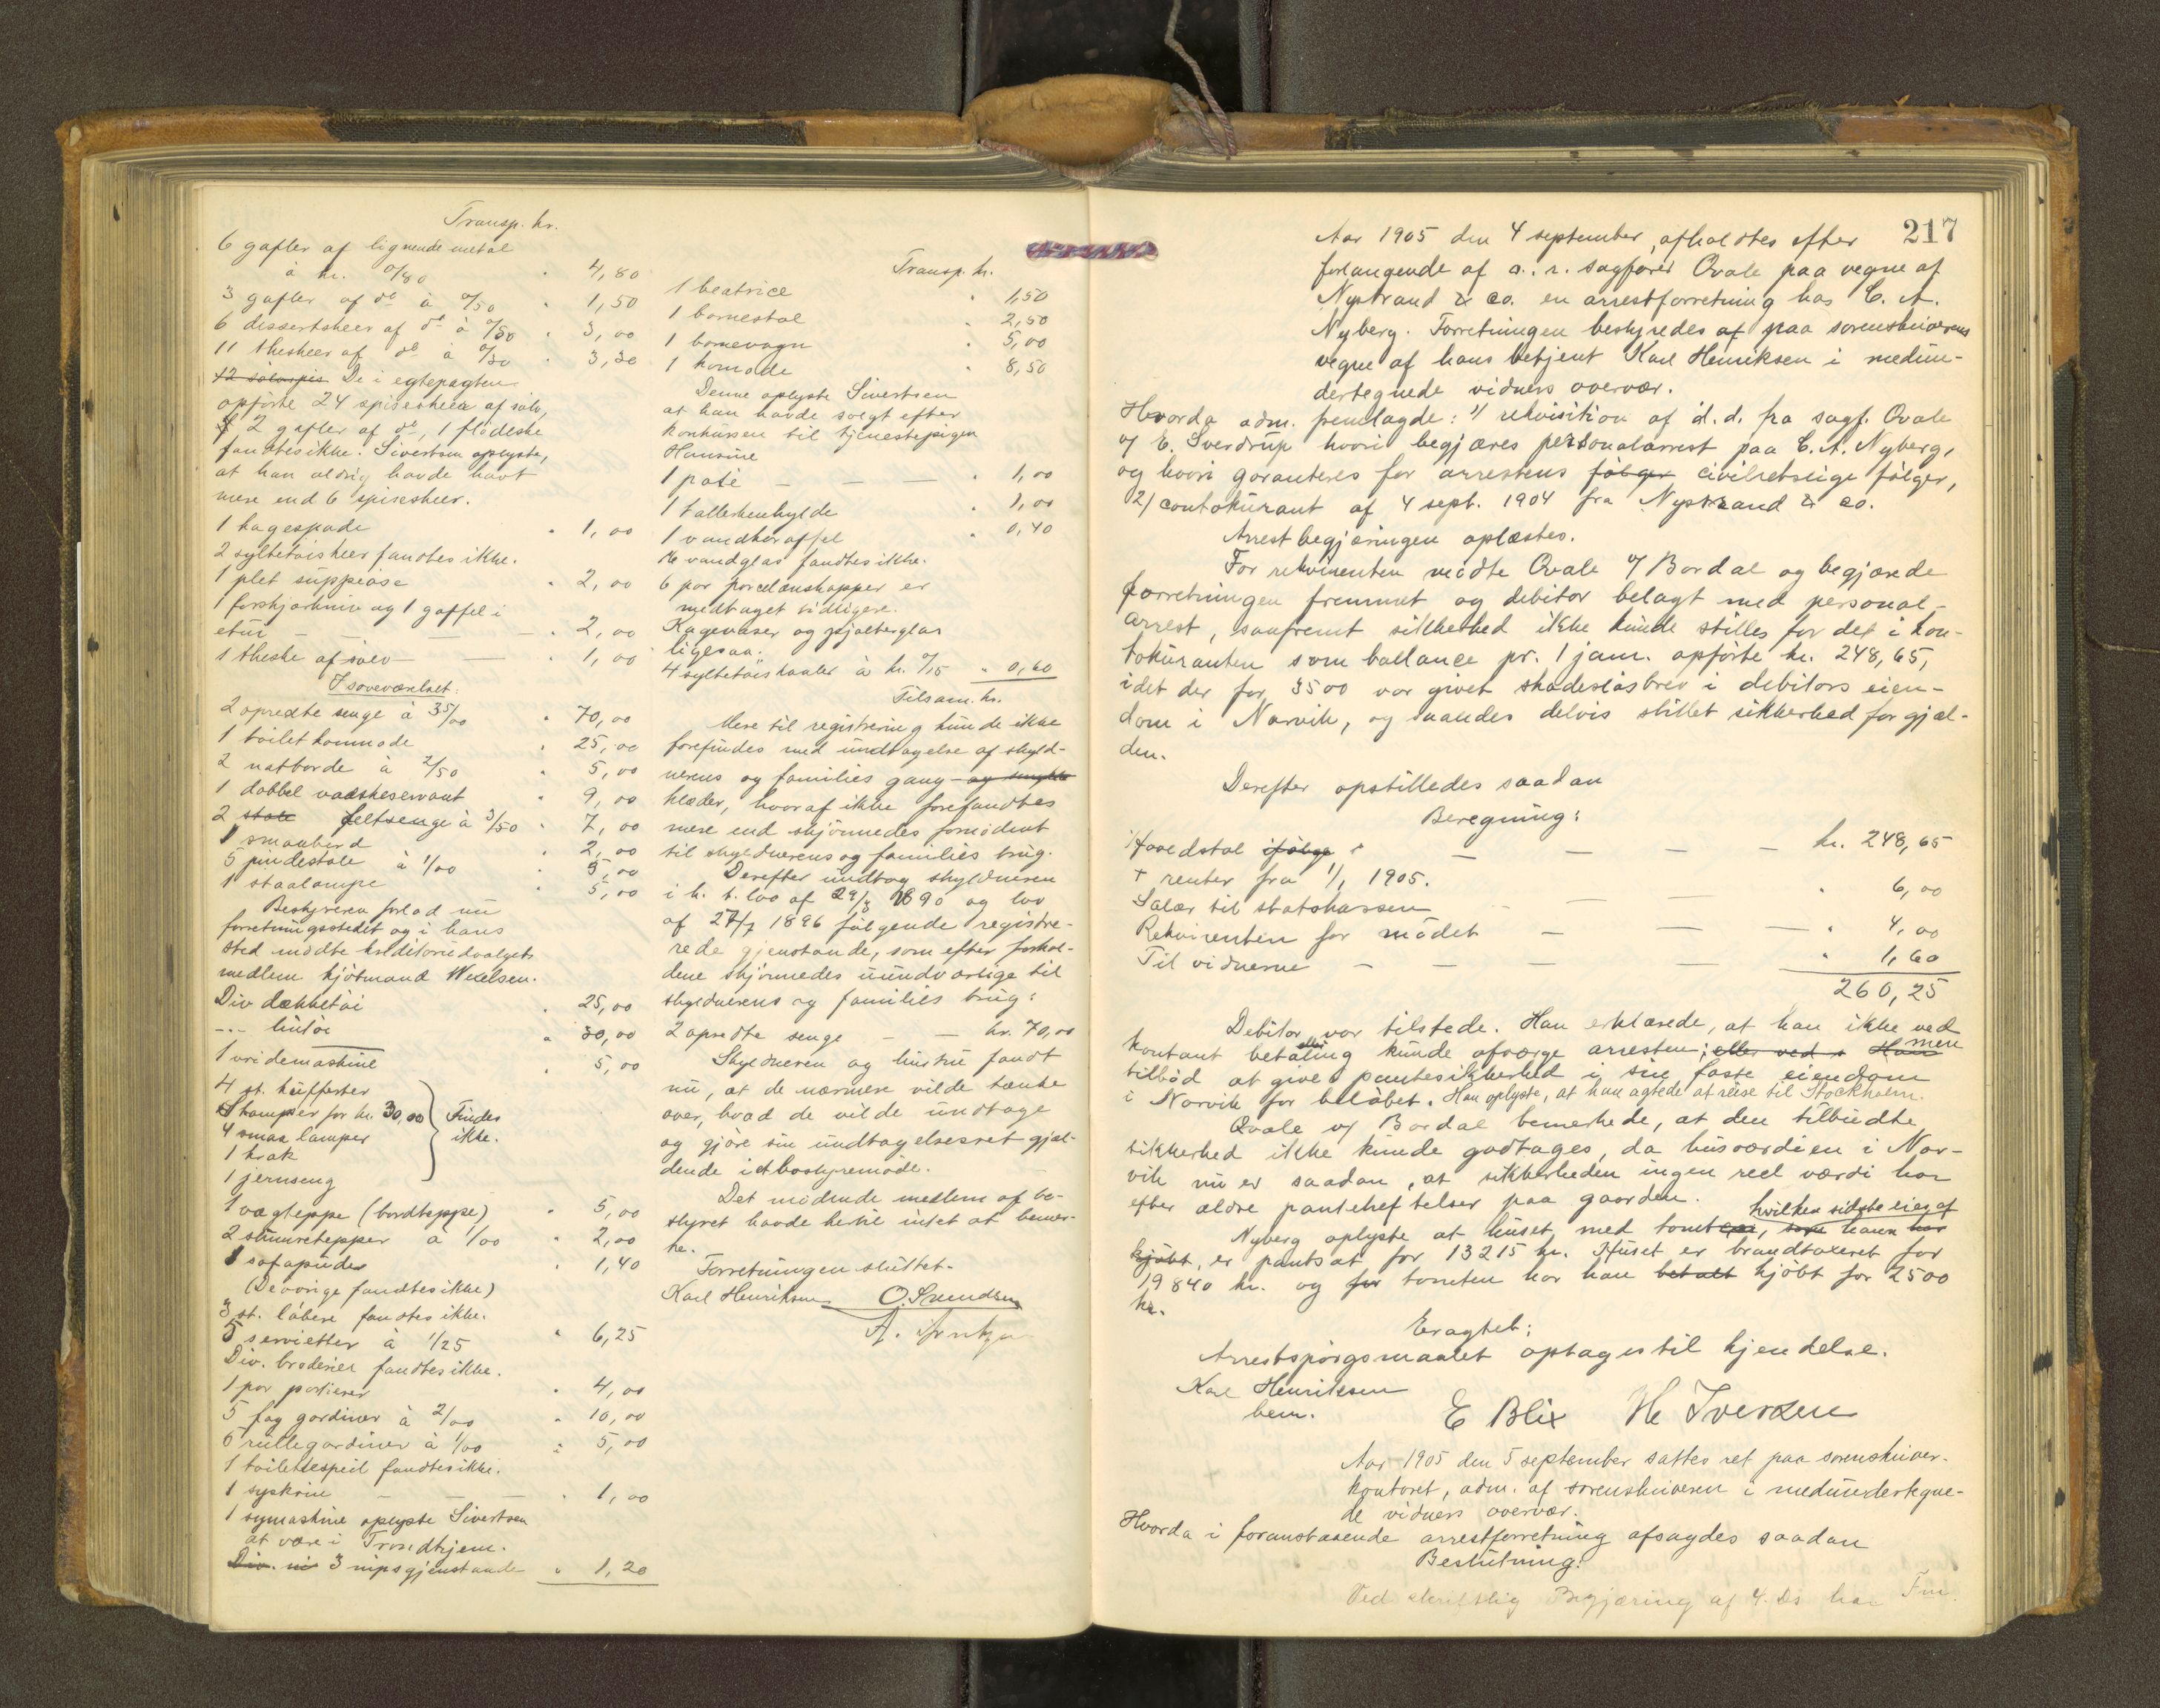 Transp. kr.
6 gafler af lignende metal
à kr. 0/80 " 4,80
3 gafler af do à 0/50 " 1,50
6 dessertskeer af do à 0/50 " 3,00
11 theskeer af do à 0/30 " 3,30
12 sølvspis De i egtepagten
opførte 24 spiseskeer af sølv,
2 gafler af do, 1 flødeske
fandtes ikke. Sivertsen oplyste,
at han aldrig havde havt
mere end 6 spiseskeer.
1 kagespade " 1,00
2 syltetøiskeer fandtes ikke.
1 plet suppeøse " 2,00
1 forskjærkniv og 1 gaffel i
etui — — — " 2,00
1 theske af sølv — — " 1,00
I soveværelset:
2 opredte senge à 35/00 " 70,00
1 toiletkommode " 25,00
2 natborde à 2/50 " 5,00
1 dobbel vaskeservant " 9,00
2 stole feltsenge à 3/50 " 7,00
1 smaabord " 2,00
5 pindestole à 1/00 " 5,00
1 staalampe " 5,00
Bestyreren forlod nu
forretningsstedet og i hans
sted mødte kreditorudvalgets
medlem kjøbmand Wexelsen.
Div dækketøi " 25,00
-"- lintøi " 30,00
1 vridemaskine " 5,00
4 st. kufferter
lamper for kr. 30,00 Findes
4 smaa lamper ikke.
1 krak
1 jernseng
1 vægteppe (bordteppe) " 5,00
2 stuuretepper à 1/00 " 2,00
1 sofapude " 1,40
(De øvrige fandtes ikke)
3 st. løbere fandtes ikke.
5 servietter à 1/25 " 6,25
Div. broderier fandtes ikke.
1 par portierer " 4,00
5 fag gardiner à 2/00 " 10,00
5 rullegardiner à 1/00 " 5,00
1 toiletspeil fandtes ikke.
1 syskrin — — — " 1,00
1 symaskine oplyste Sivertsen
at være i Trondhjem.
Div. ni 3 nipsgjenstande " 1,20
Transp. kr.
1 beatrice " 1,50
1 barnestol " 2,50
1 barnevogn " 5,00
1 komode " 8,50
Denne oplyste Sivertsen
at han havde solgt efter
konkursen til tjenestepigen
Hansine
1 paté — — — " 1,00
1 tallerkenhylde " 1,00
1 vandkaraffel " 0,40
16 vandglas fandtes ikke.
6 par porcelænskopper er
medtaget tidligere.
Kagevaser og pjolterglas
ligesaa.
4 syltetøiskaaler à kr. 0/15 " 0,60
Tilsam. kr.
Mere til registrering kunde ikke
forefindes med undtagelse af skyld-
nerens og families gang- og smykke
klæder, hvoraf ikke forefandtes
mere end skjønnedes fornødent
til skyldnerens og families brug.
Derefter undtog skyldneren
i h. t. lov af 29/3 1890 og lov
af 27/7 1896 følgende registre-
rede gjenstande, som efter forhol-
dene skjønnedes uundværlige til
skyldnerens og families brug:
2 opredte senge — — kr. 70,00
Skyldneren og hustru fandt
nu, at de nærmere vilde tænke
over, hvad de vilde undtage
og gjøre sin undtagelsesret gjæl-
dende i et bostyremøde.
Det mødende medlem af bo-
styret havde hertil intet at bemær-
ke.
Forretningen sluttet.
Karl Henriksen O. Svendsen
217
Aar 1905 den 4 september, afholdtes efter
forlangende af o. r. sagfører Qvale paa vegne af
Nystrand & co. en arrestforretning hos C. A.
Nyberg. Forretningen bestyredes af paa sorenskriverens
vegne af hans betjent Karl Henriksen i medun-
dertegnede vidners overvær.
Hvorda adm. fremlagde: 1/ rekvisition af d. d. fra sagf. Qvale
v/ E. Sverdrup hvori begjæres personalarrest paa C. A. Nyberg,
og hvori garanteres for arrestens følger civilretslige følger,
2/ contokurant af 4 sept. 1904 fra Nystrand & co.
Arrestbegjæringen oplæstes.
For rekvirenten mødte Qvale v/ Bordal og begjærede
forretningen fremmet og debitor belagt med personal-
arrest, saafremt sikkerhed ikke kunde stilles for det i kon-
tokuranten som ballance pr. 1 janr. opførte kr. 248,65,
idet der for 3500 var givet skadesløsbrev i debitors eien-
dom i Narvik, og saaledes delvis stillet sikkerhed for gjæl-
den.
Derefter opstilledes saadan
Beregning:
Hovedstol ifølge — — — — kr. 248,65
+ renter fra 1/1 1905.
Salær til statskassen — — — " 6,00
Rekvirenten for mødet — — — " 4,00
Til vidnerne — — — — " 1,60
260,25
Debitor var tilstede. Han erklærede, at han ikke ved
kontant betaling kunde afværge arresten; eller ved Han men
tilbød at give pantesikkerhed i sin faste eiendom
i Narvik for beløbet. Han oplyste, at han agtede at reise til Stockholm.
Qvale v/ Bordal bemerkede, at den tilbudte
sikkerhed ikke kunde godtages, da husværdien i Nar-
vik nu er saadan, at sikkerheden ingen reel værdi har
efter ældre panteheftelser paa gaarden. hvilken sidste eies af
Nyberg oplyste at huset med tomten, som ham har
kjøbt, er pantsat for 13215 kr. Huset er brandtaxeret for
19840 kr. og for tomten har han betalt kjøbt for 2500
kr.
Eragtet:
Arrestspørgsmaalet optages til kjendelse.
Karl Henriksen
bem. E Blix He Iversen
Aar 1905 den 5 september sattes ret paa sorenskriver-
kontoret, adm. af sorenskriveren i medundertegne-
de vidners overvær.
Hvorda i foranstaaende arrestforretning afsagdes saadan
Beslutning:
Ved skriftlig Begjæring af 4. ds har